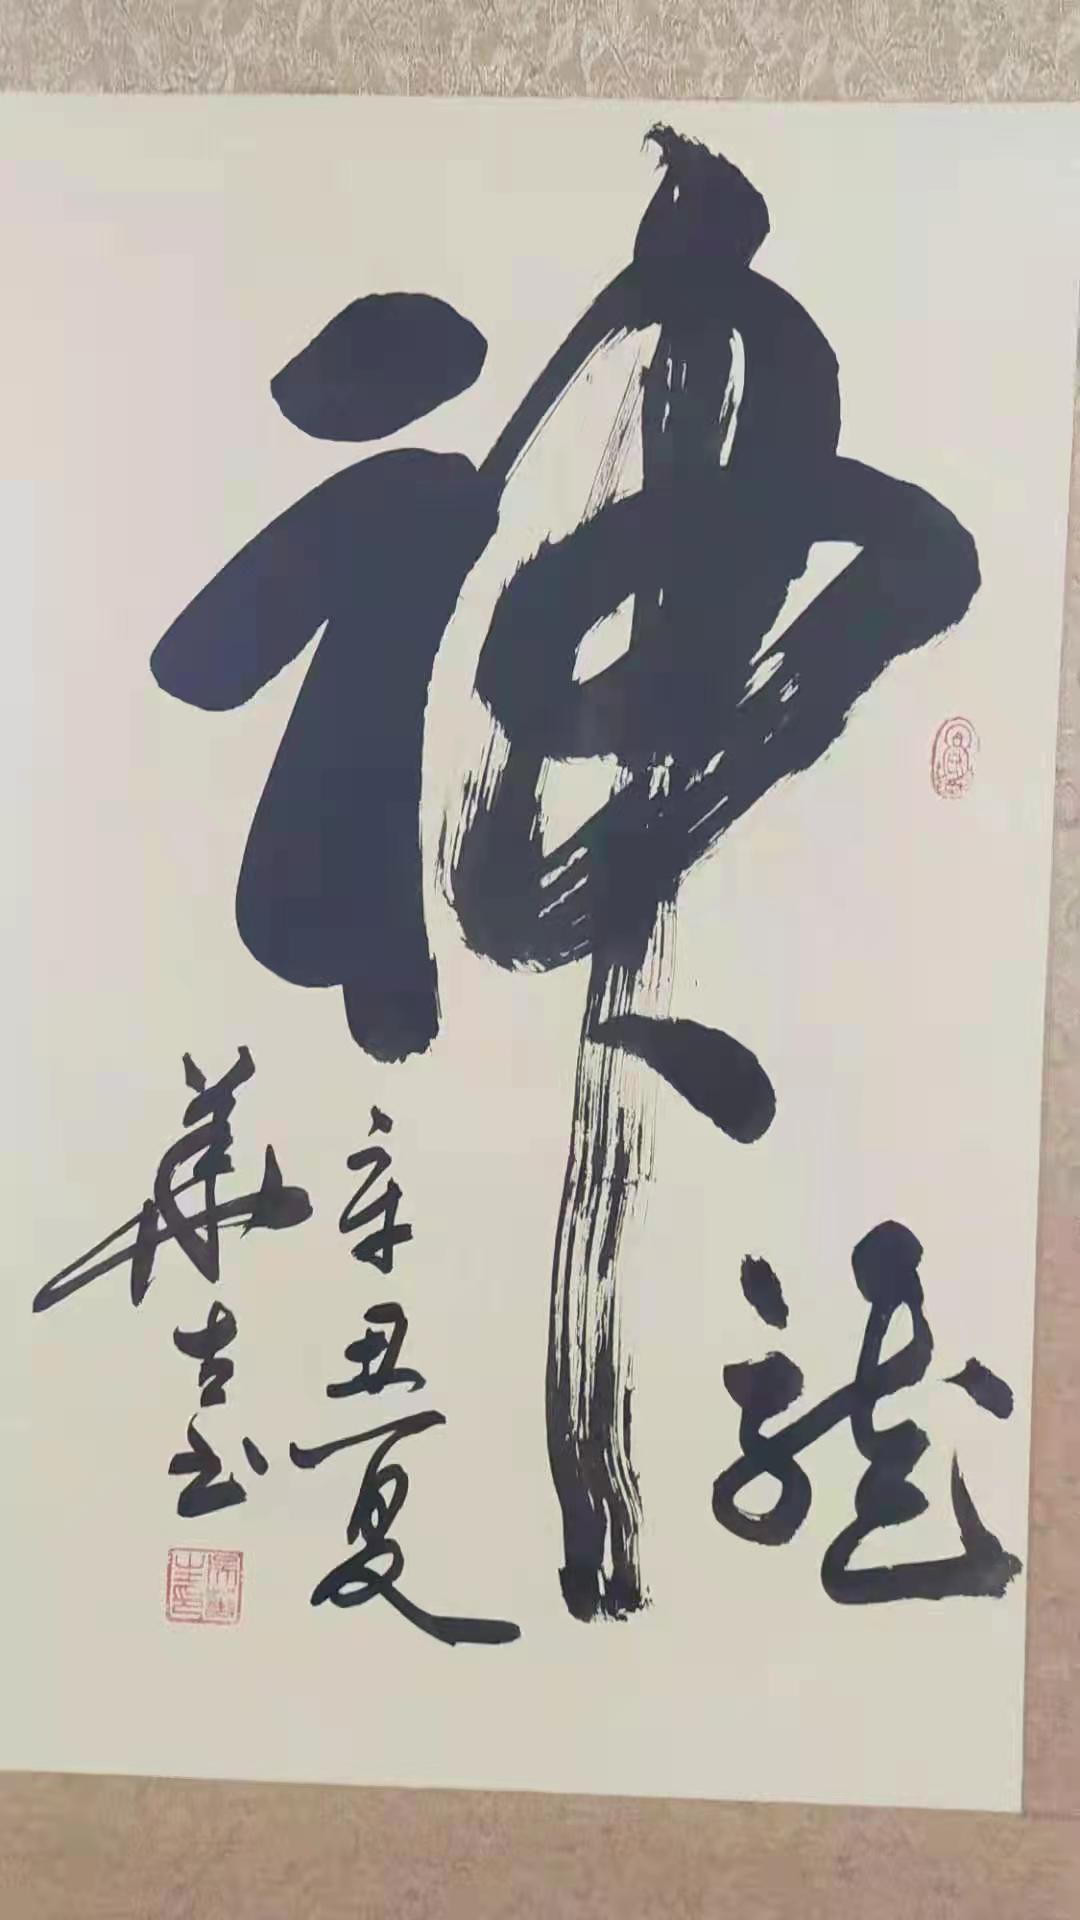 神
龍
辛丑夏
華吉书